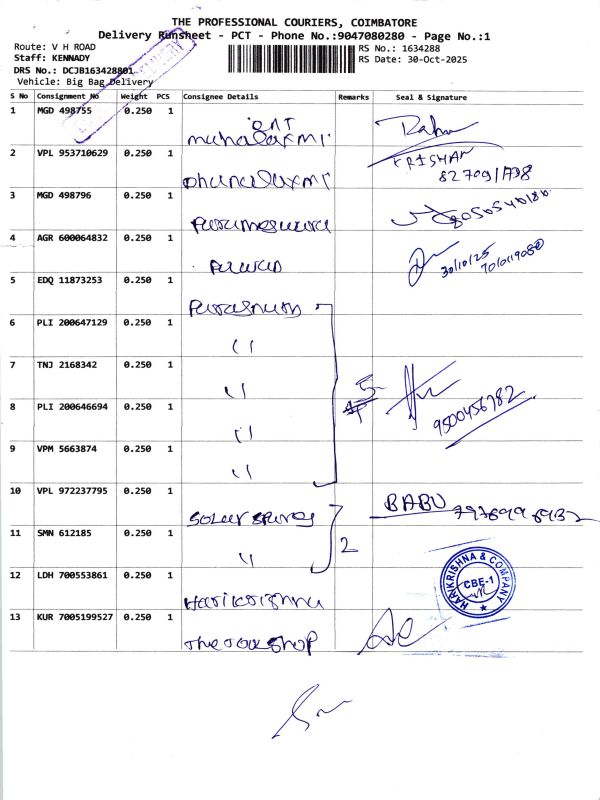 THE PROFESSIONAL COURIERS, COIMBATORE
Delivery Runsheet - PCT - Phone No.:9047080280 - Page No.:1
Route: V H ROAD
Staff: KENNADY
DRS No.: DCJB163428801
Vehicle: Big Bag Delivery
RS No.: 1634288
RS Date: 30-Oct-2025
S No Consignment No Weight PCS Consignee Details Remarks Seal & Signature
1 MGD 498755 0.250 1 mahalaxmi
2 VPL 953710629 0.250 1 Dhanalaxmi KRISHAN
3 MGD 498796 0.250 1
4 AGR 600064832 0.250 1 Pawan 30/10/25
5 EDQ 11873253 0.250 1 Parasnath
6 PLI 200647129 0.250 1 11
7 TNJ 2168342 0.250 1 11 5 9500456782
8 PLI 200646694 0.250 1 11
9 VPM 5663874 0.250 1 11
10 VPL 972237795 0.250 1 BABU
11 SMN 612185 0.250 1 11 2
12 LDH 700553861 0.250 1 Harikrishna
HARIKRISHNA & COMPANY
CBE-1
13 KUR 7005199527 0.250 1 The SHOP